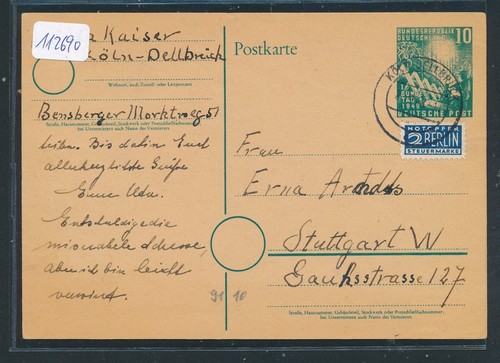 112690
a Kaiser
Köln-Dellbrück
Wohnort, auch Zustell- oder Leitpostamt
Bensberger Marktweg 51
Straße, Hausnummer, Gebäudeteil, Stockwerk oder Postschließfachnummer
bei Untermietern auch Name des Vermieters
bleiben. Bis dahin Euch
allerherzlichste Grüße
Eure Uta.
Entschuldige die
miserable Adresse,
aber ich bin leicht
verwirrt.
Postkarte
10
BUNDESREPUBLIK
DEUTSCHLAND
BUNDES
TAG
1949
DEUTSCHE POST
NOTOPFER
2 BERLIN
STEUERMARKE
Frau
Erna
Stuttgart W
Gaußstrasse 127
Straße, Hausnummer, Gebäudeteil, Stockwerk oder Postschließfachnummer;
bei Untermietern auch Name des Vermieters
91 10